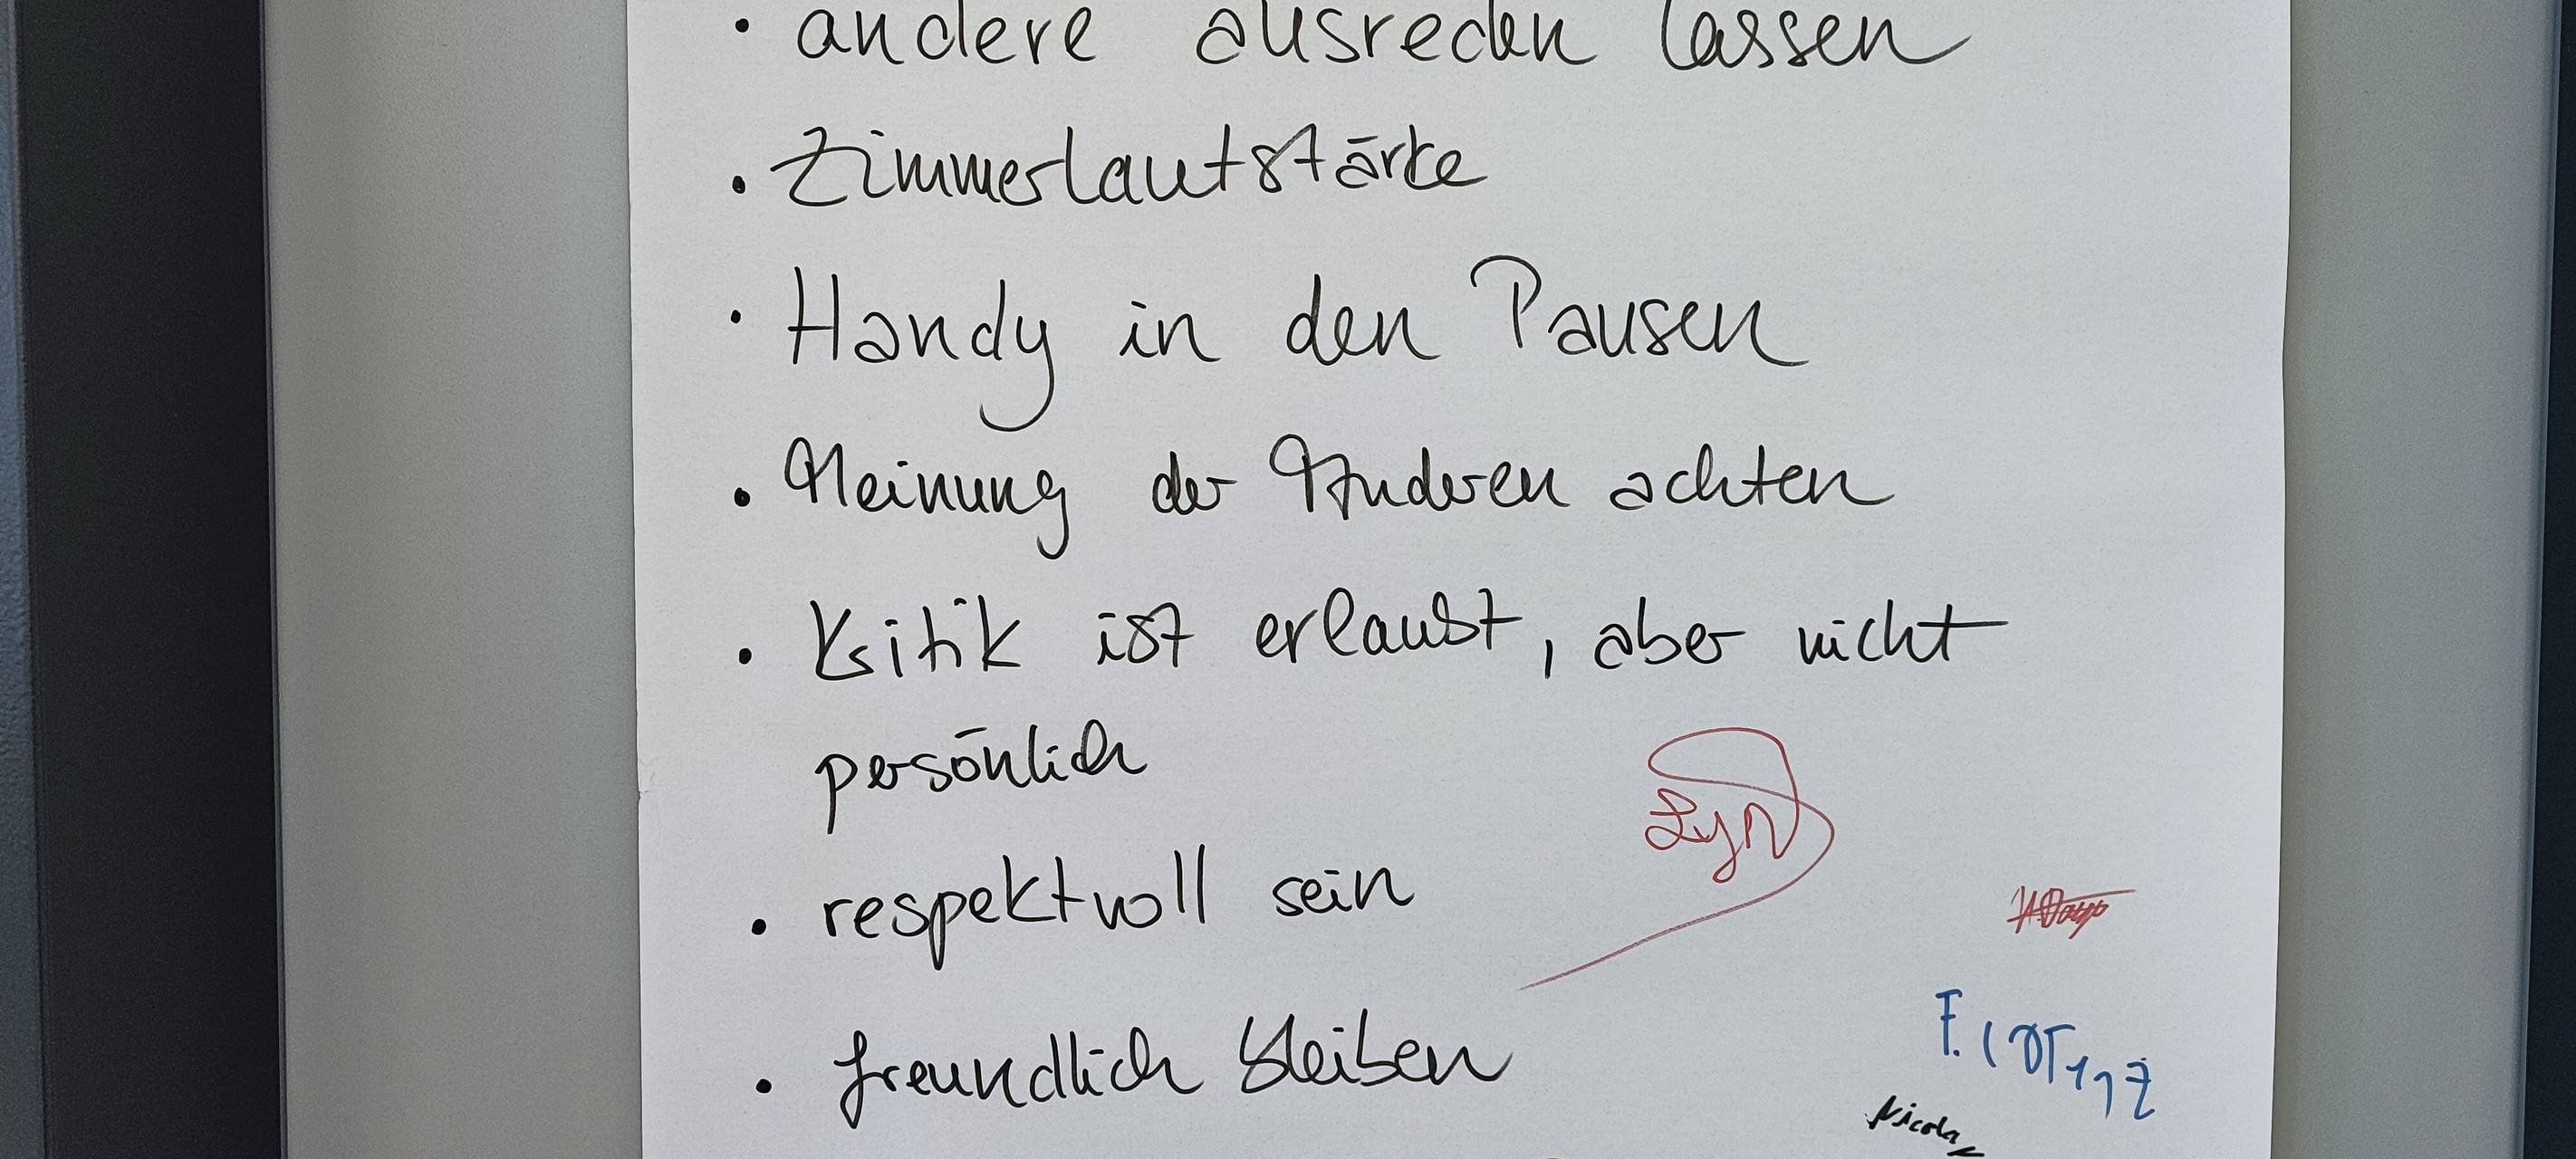 • andere ausreden lassen
• Zimmerlautstärke
• Handy in den Pausen
• Meinung der Anderen achten
• Kritik ist erlaubt, aber nicht
persönlich
• respektvoll sein
• freundlich bleiben
Nicola